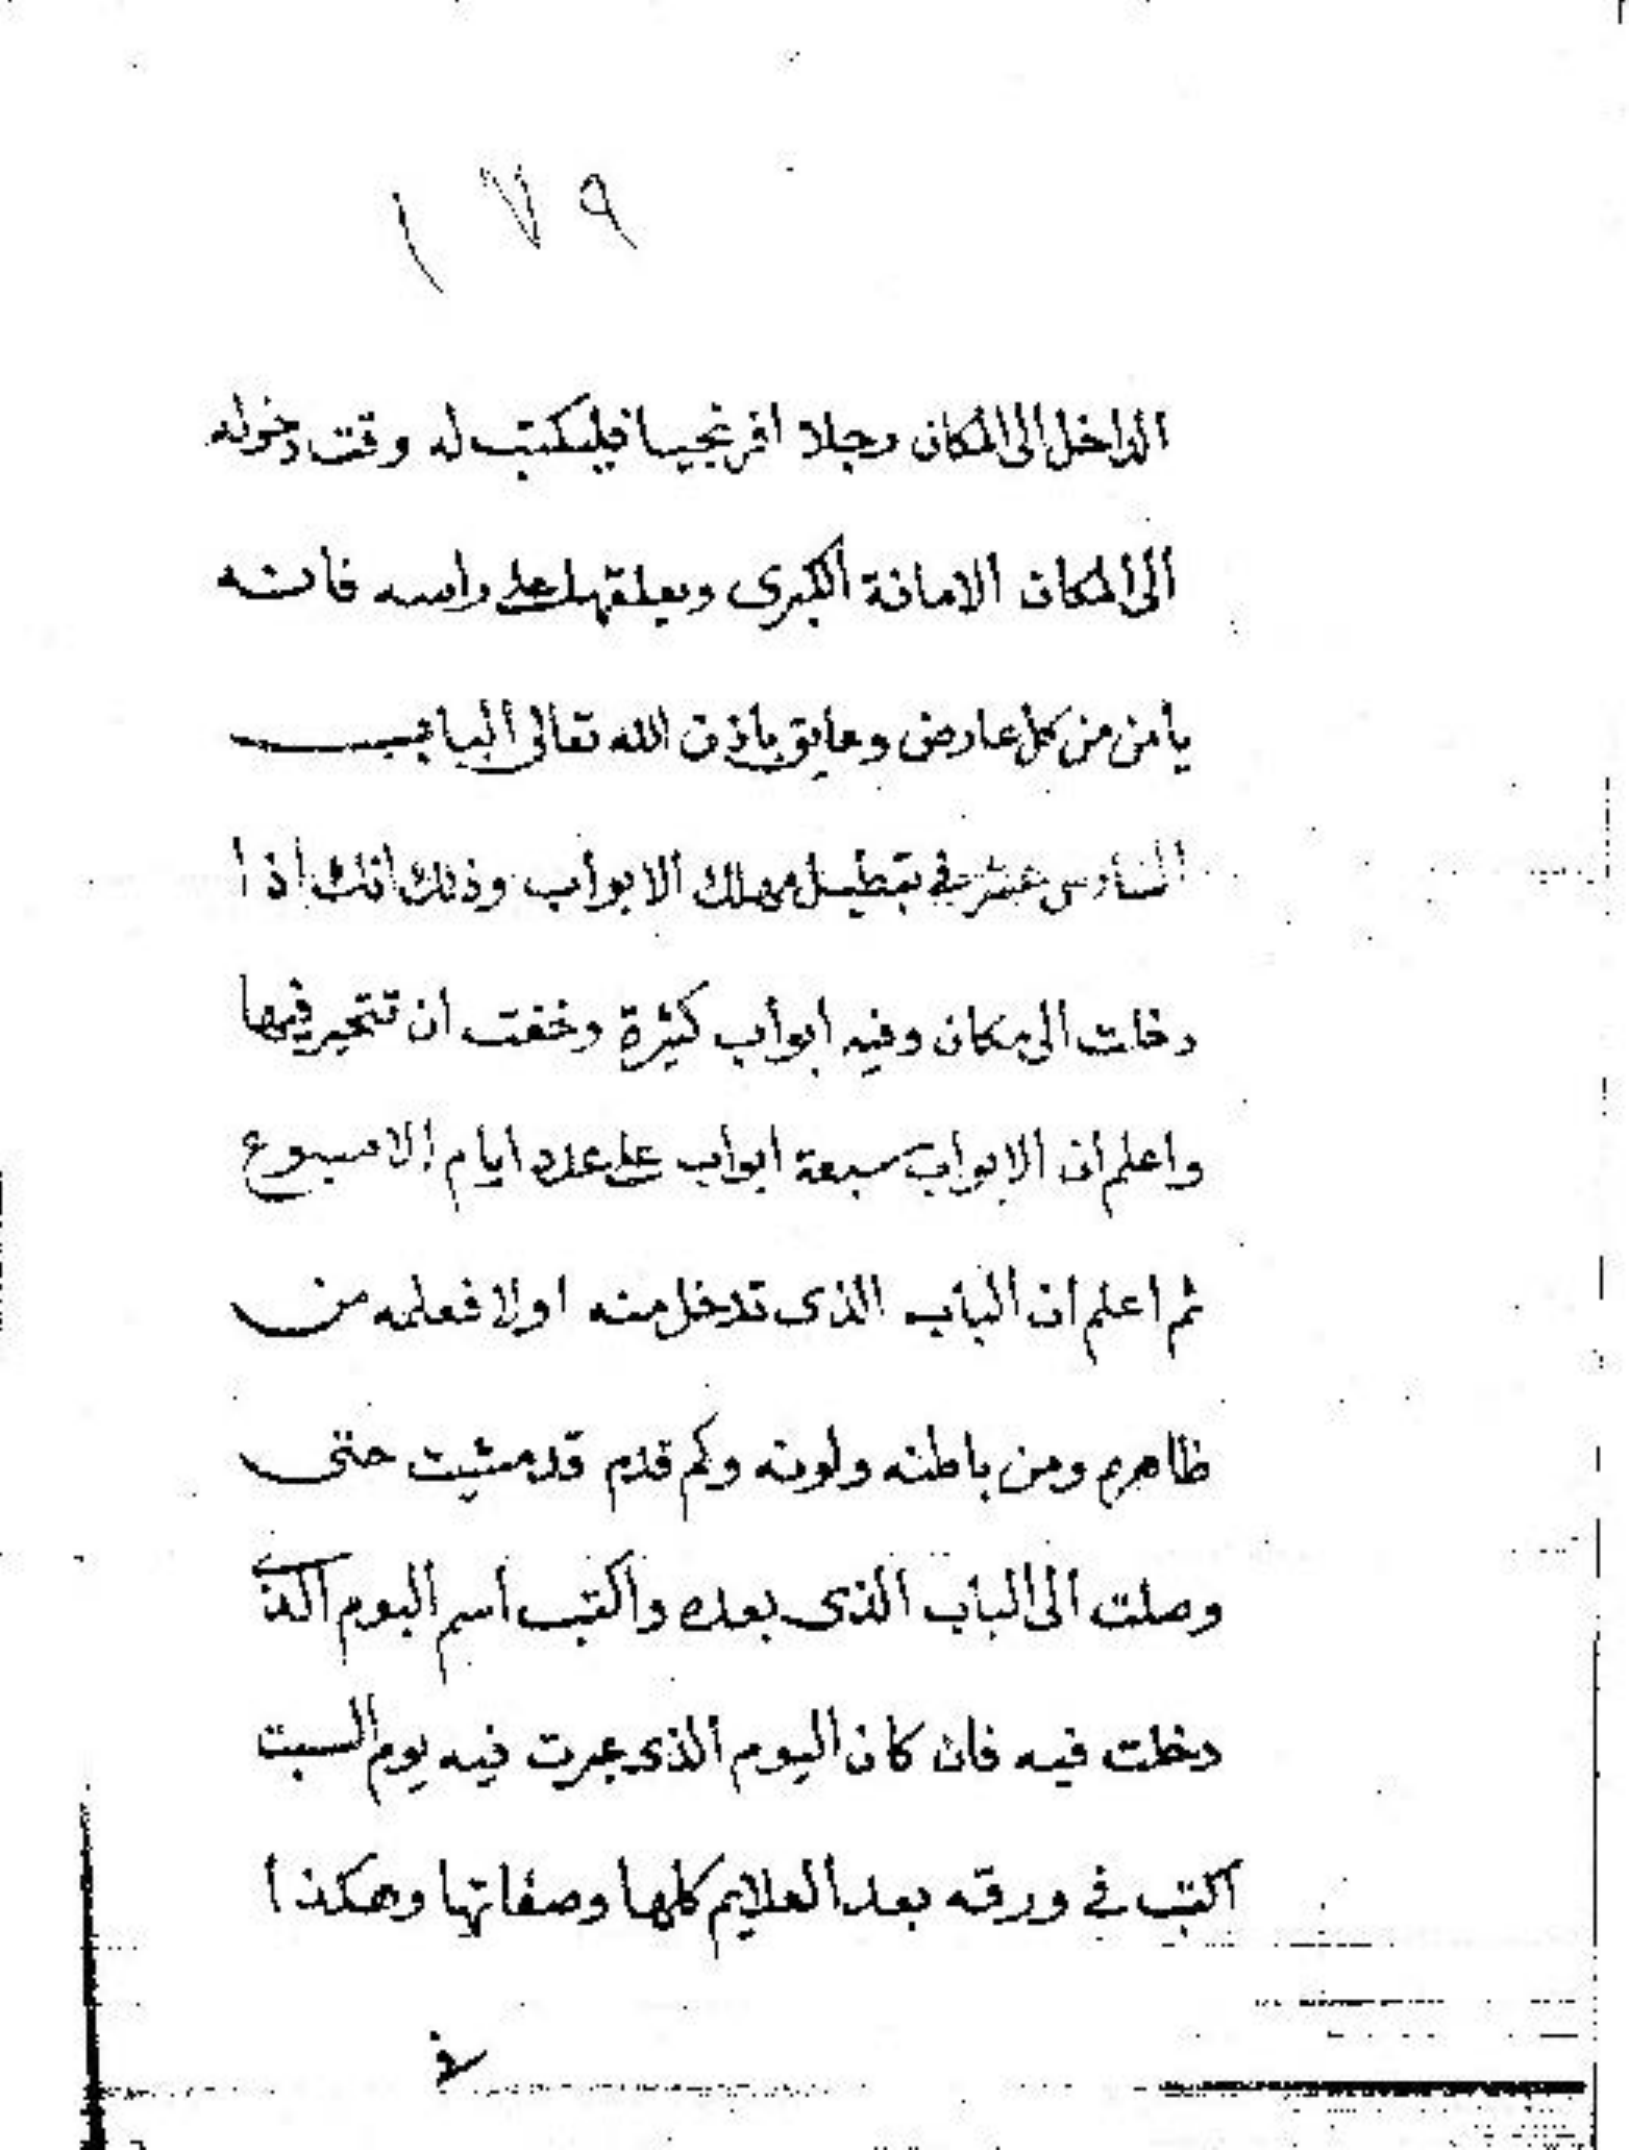 ١٧٩
الداخل الى المكان رجلا افرنجيا فليكتب له وقت دخوله
الى المكان الامانة الكبرى ويعلقها على راسه فانه
يأمن من كل عارض وعايق باذن الله تعالى الباب
السادس عشر في تبطيل مهلك الابواب وذلك انك اذا
دخلت الى مكان وفيه ابواب كثيرة وخفت ان تتحير فيها
واعلم ان الابواب سبعة ابواب على عدد ايام الاسبوع
ثم اعلم ان الباب الذى تدخل منه اولا فعلمه من
ظاهره ومن باطنه ولونه وكم قدم قد مشيت حتى
وصلت الى الباب الذى بعده واكتب اسم اليوم الذي
دخلت فيه فان كان اليوم الذى عبرت فيه يوم السبت
اكتب في ورقه بعد العلايم كلها وصفاتها وهكذا
في